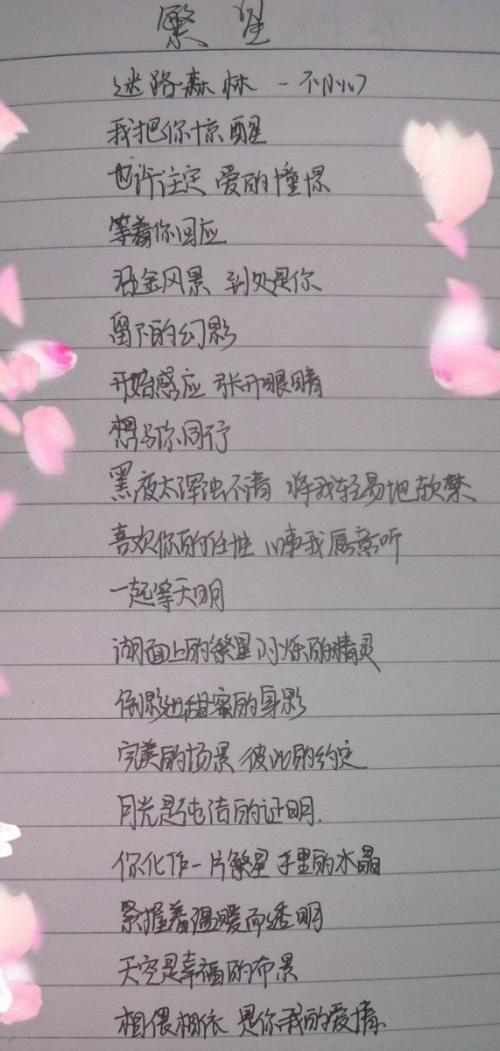 繁星
迷路森林 一不小心
我把你惊醒
也许注定 爱的憧憬
等着你回应
泛金风景 到处是你
留下的幻影
开始感应 张开眼睛
想与你同行
黑夜太浑浊不清 将我轻易地软禁
喜欢你的任性 心事我愿意听
一起等天明
湖面上的繁星 闪烁的精灵
倒影出甜蜜的身影
完美的场景 彼此的约定
月光是纯洁的证明.
你化作一片繁星 手里的水晶
紧握着温暖而透明
天空是幸福的布景
相偎相依 是你我的爱情.